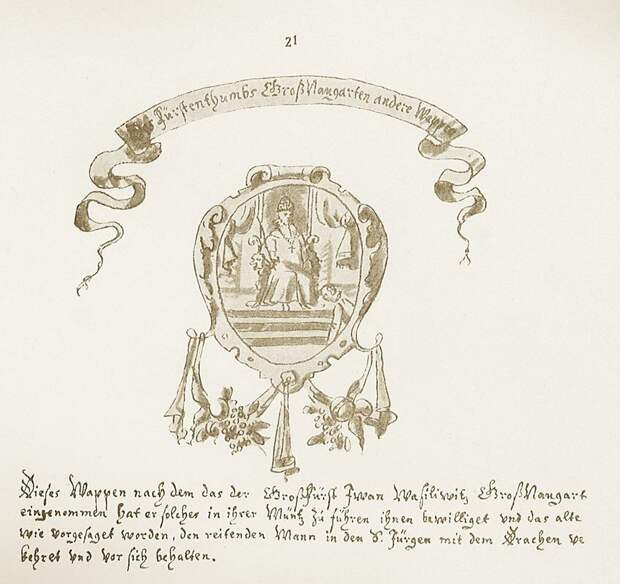 21
Fürstenthumbs GroßNaugarten andere Wappen
Dieses Wappen nach dem das der GroßFürst Iwan Wasiliwitz GroßNaugart
eingenommen hat er solches in ihrer Müntz zu führen ihnen bewilliget und das alte
wie vorgesaget worden, den reitenden Mann in den S. Jürgen mit dem Drachen ve
kehret und vor sich behalten.